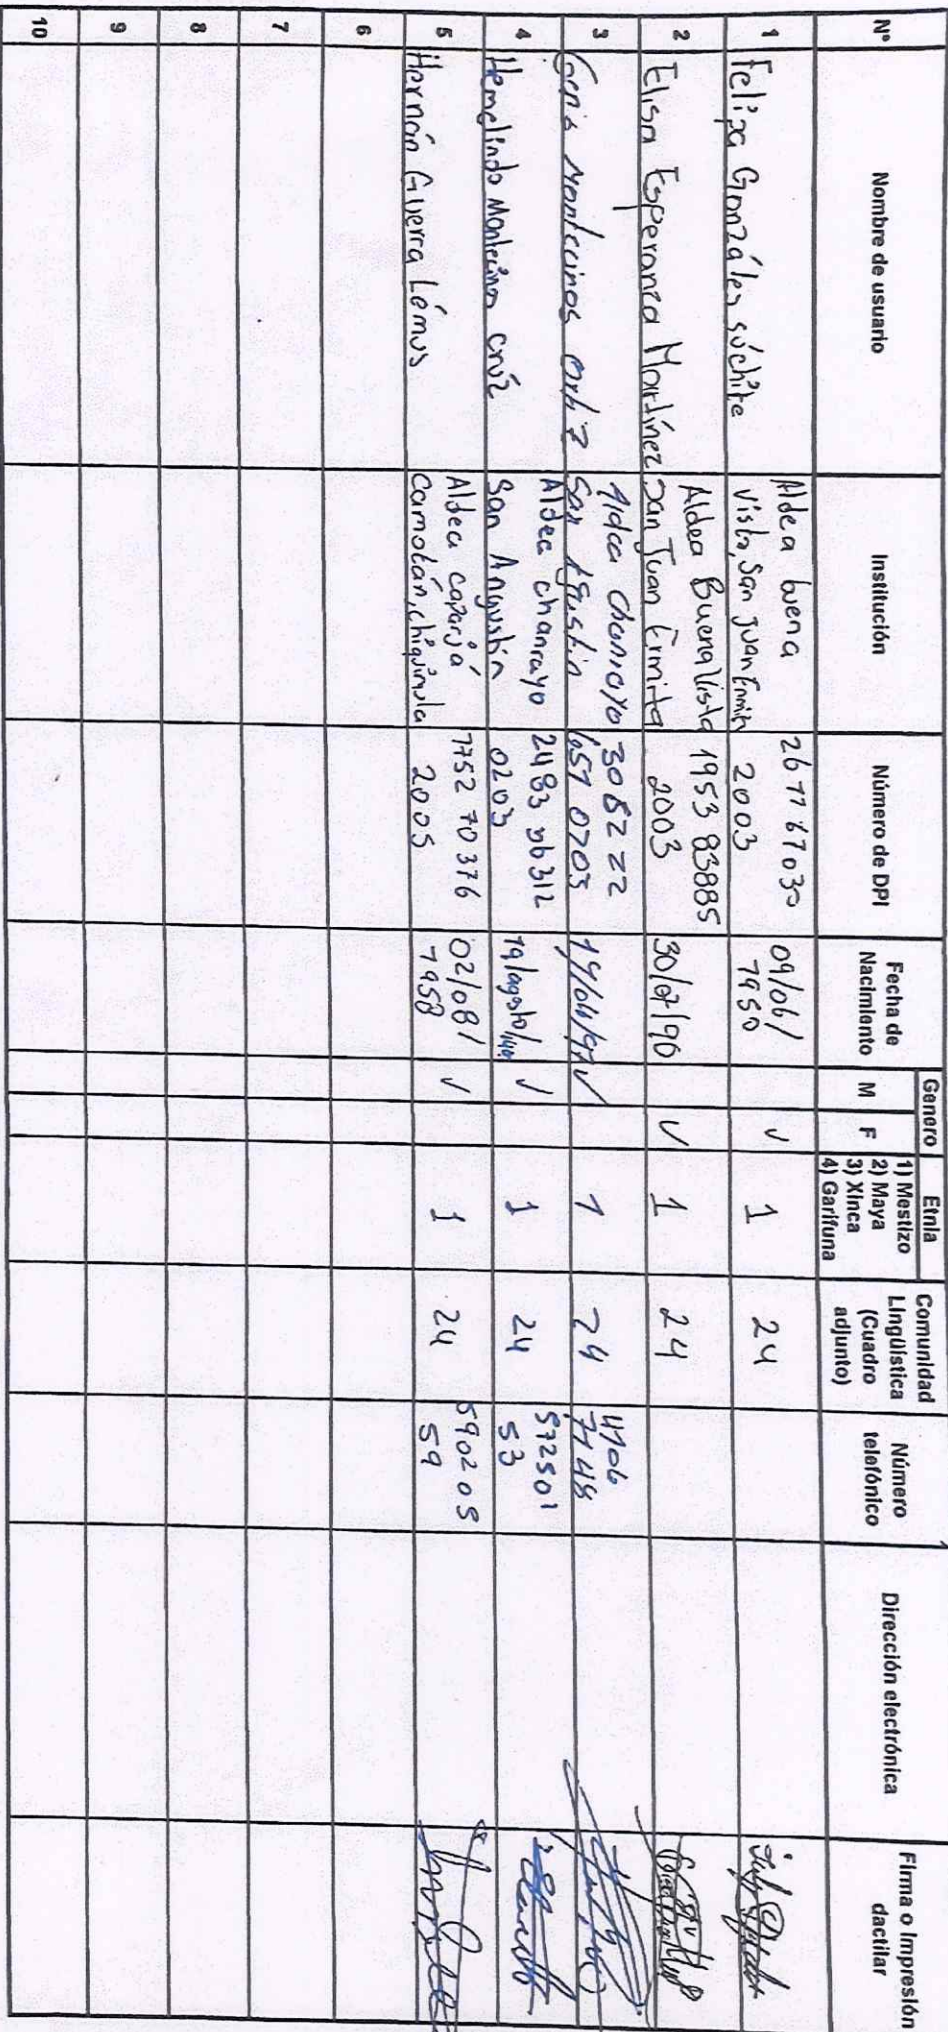 Nº
Nombre de usuario
Institución
Número de DPI
Fecha de
Nacimiento
Genero
M
F
Etnia
1) Mestizo
2) Maya
3) Xinca
4) Garifuna
Comunidad
Lingüística
(Cuadro
adjunto)
Número
telefónico
Dirección electrónica
Firma o Impresión
dactilar
1
Felipa Gonzáles súchite
Aldea buena
vista, San Juan Ermita
26 77 67030
2003
09/06/
1950
✓
1
24
2
Elisa Esperanza Martínez
Aldea Buena Vista
San Juan Ermita
1953 83885
2003
30/07/90
✓
1
24
3
Montecinos
Aldea chanrayo
San Agustin
3082 22
657 0203
✓
1
24
4706
7148
4
Hemelindo Montecinos cruz
Aldea chanrayo
San Angustín
2483
0203
19/agosto/
✓
1
24
572501
53
5
Hernán Guerra Lémus
Aldea caparjá
Camotán, chiquimula
1752 70376
2005
02/08/
1958
✓
1
24
590205
59
6
7
8
9
10